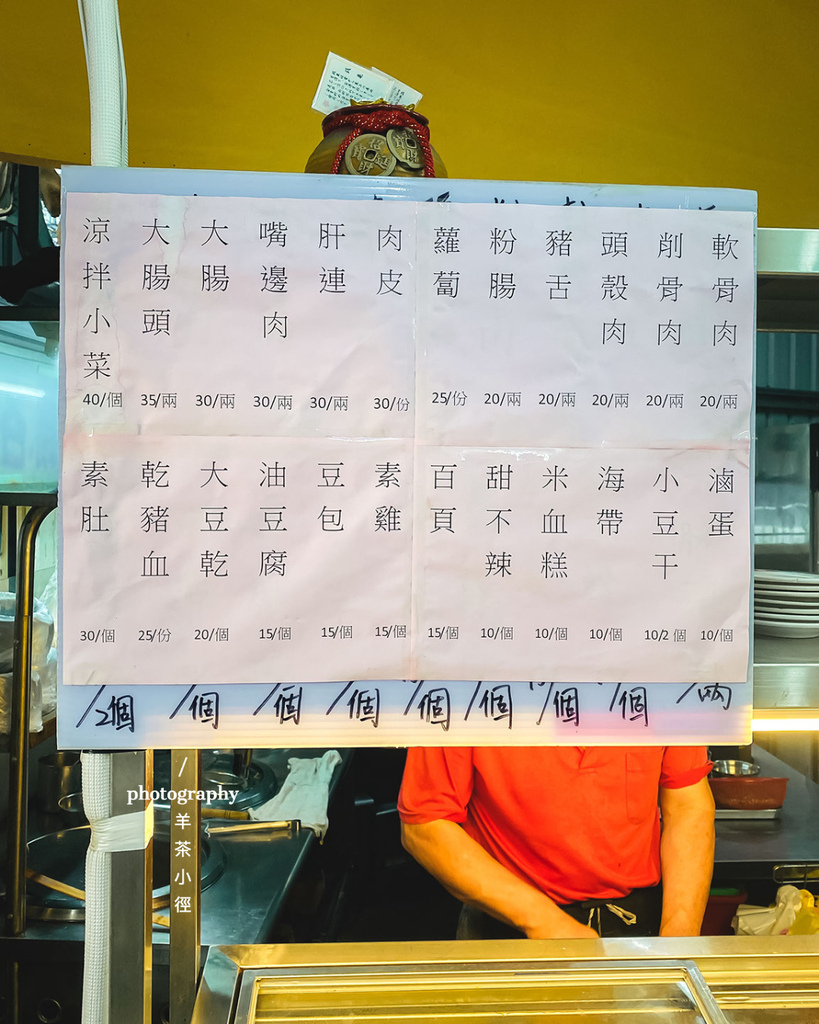 軟骨肉 20/兩
削骨肉 20/兩
頭殼肉 20/兩
豬舌 20/兩
粉腸 20/兩
蘿蔔 25/份
肉皮 30/份
肝連 30/兩
嘴邊肉 30/兩
大腸 30/兩
大腸頭 35/兩
涼拌小菜 40/個
滷蛋 10/個
小豆干 10/2個
海帶 10/個
米血糕 10/個
甜不辣 10/個
百頁 15/個
素雞 15/個
豆包 15/個
油豆腐 15/個
大豆乾 20/個
乾豬血 25/份
素肚 30/個
/2個 /個 /個 /個 /個 /個 /個 /個 /兩
/
photography
羊茶小徑
/